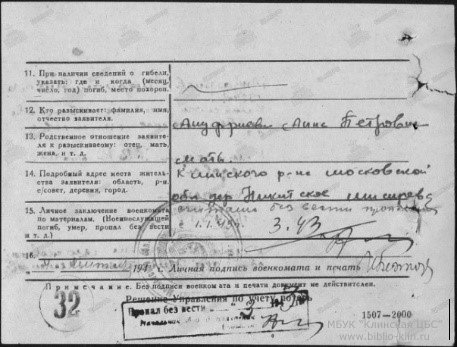 11. При наличии сведений о гибели,
указать: где и когда (месяц,
число, год) погиб, место похорон.
12. Кто разыскивает: фамилия, имя,
отчество заявителя.
Анна Петровн
13. Родственное отношение заявите-
ля к разыскиваемому: отец, мать,
жена, и т. д.
мать
14. Подробный адрес места житель-
ства заявителя: область, р-н,
с/совет, деревня, город.
Клинского р-на московской
обл дер Никитское
15. Личное заключение военкомата
по материалам. (Военнослужащий
погиб, умер, пропал без вести
и т. д.)
без вести
3.43
16.
194 г. Личная подпись военкомата и печать
Примечание. Без подписи военкомата и печати документ не действителен.
32
Решение Управления по учету потерь
Пропал без вести
1507—2000
МБУК "КЛИНСКАЯ ЦБС"
www.biblio-klin.ru